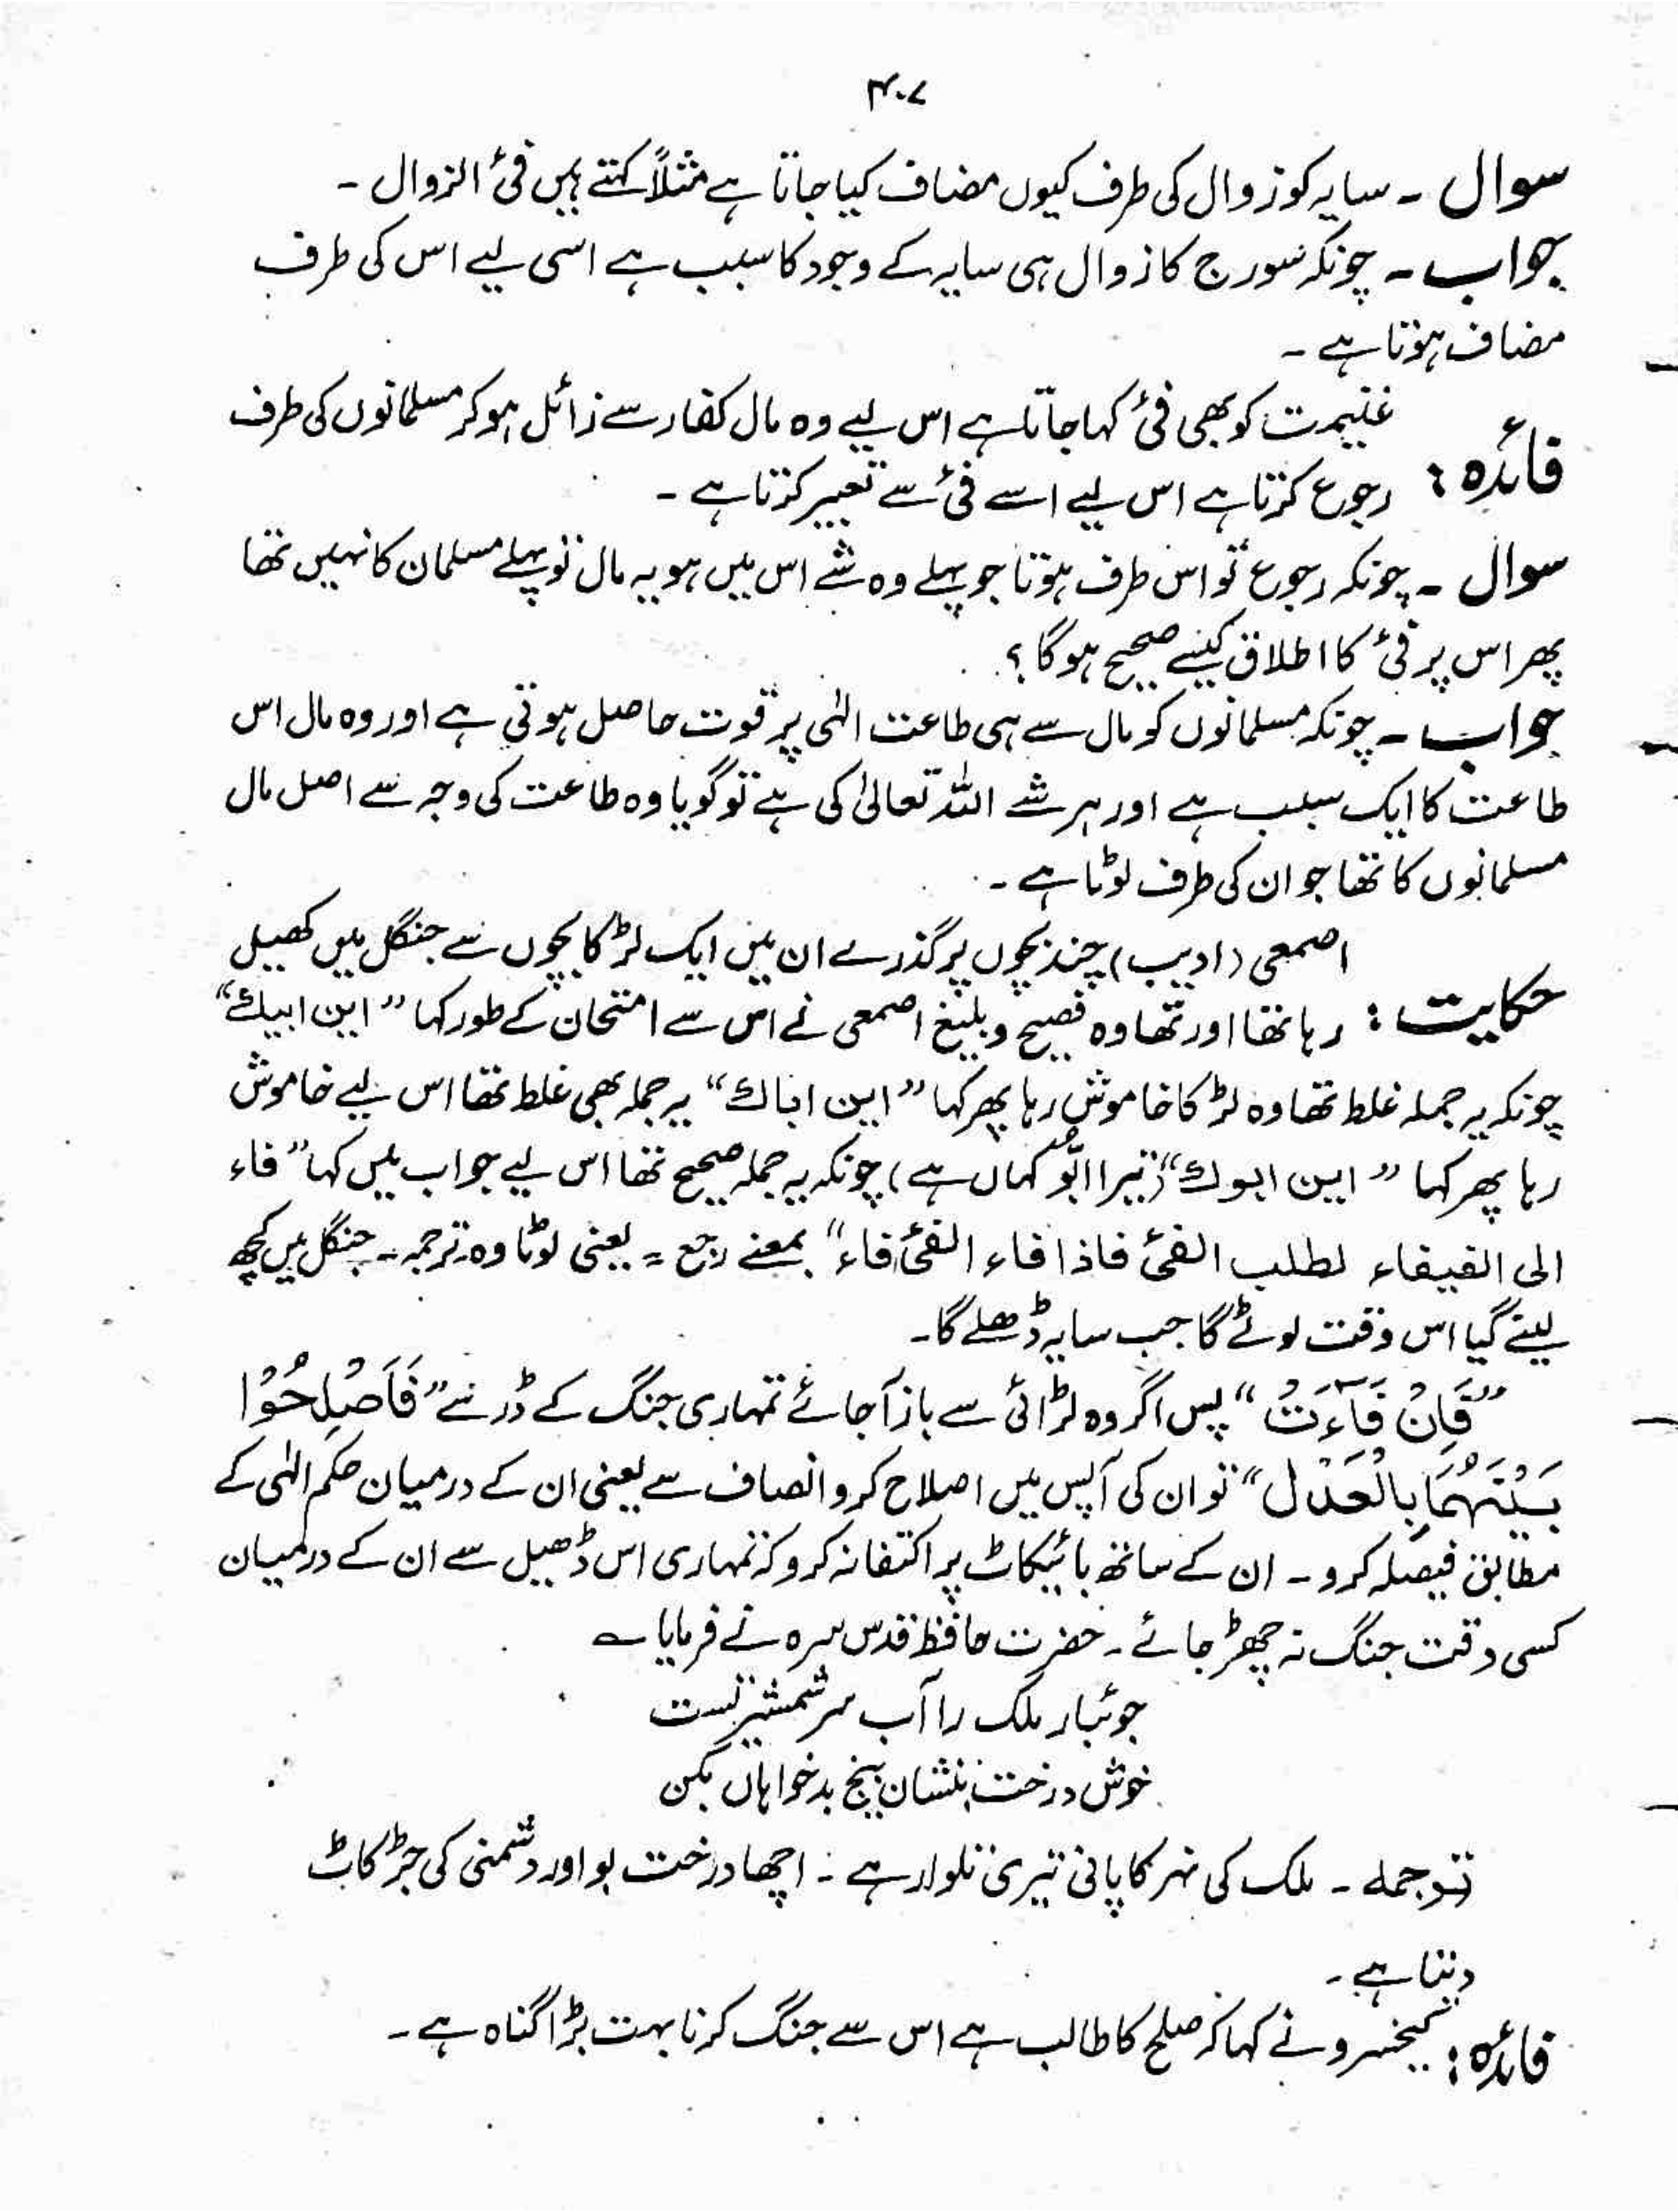 ۴۰۷
سوال ۔ سایہ کو زوال کی طرف کیوں مضاف کیا جاتا ہے مثلاً کہتے ہیں فئ الزوال ۔
جواب ۔ چونکہ سورج کا زوال ہی سایہ کے وجود کا سبب ہے اسی لیے اس کی طرف
مضاف ہوتا ہے ۔
فائدہ : غنیمت کو بھی فئ کہا جاتا ہے اس لیے وہ مال کفار سے زائل ہو کر مسلمانوں کی طرف
رجوع کرتا ہے اس لیے اسے فئ سے تعبیر کرتا ہے ۔
سوال ۔ چونکہ رجوع تو اس طرف ہوتا جو پہلے وہ شے اس میں ہو یہ مال تو پہلے مسلمان کا نہیں تھا
پھر اس پر فئ کا اطلاق کیسے صحیح ہوگا ؟
جواب ۔ چونکہ مسلمانوں کو مال سے ہی طاعت الٰہی پر قوت حاصل ہوتی ہے اور وہ مال اس
طاعت کا ایک سبب ہے اور ہر شے اللہ تعالیٰ کی ہے تو گویا وہ طاعت کی وجہ سے اصل مال
مسلمانوں کا تھا جو ان کی طرف لوٹا ہے ۔
حکایت : اصمعی (ادیب) چند بچوں پر گذرے ان میں ایک لڑکا بچوں سے جنگل میں کھیل
رہا تھا اور تھا وہ فصیح و بلیغ اصمعی نے اس سے امتحان کے طور کہا ”این ابیك“
چونکہ یہ جملہ غلط تھا وہ لڑکا خاموش رہا پھر کہا ”این اباك“ یہ جملہ بھی غلط تھا اس لیے خاموش
رہا پھر کہا ”این ابوك“ (تیرا ابُّو کہاں ہے) چونکہ یہ جملہ صحیح تھا اس لیے جواب میں کہا ”فاء
الی الفیفاء لطلب الفئ فاذا فاء الفئ فاء“ بمعنے رجع = یعنی لوٹا وہ ترجمہ ۔ جنگل میں کچھ
لینے گیا اس وقت لوٹے گا جب سایہ ڈھلے گا۔
”فَاِنْ فَآءَتْ“ پس اگر وہ لڑائی سے باز آجائے تمہاری جنگ کے ڈر سے ”فَاَصْلِحُوْا
بَیْنَہُمَا بِالْعَدْلِ“ تو ان کی آپس میں اصلاح کرو انصاف سے یعنی ان کے درمیان حکم الٰہی کے
مطابق فیصلہ کرو ۔ ان کے ساتھ بائیکاٹ پر اکتفا نہ کرو کہ تمہاری اس ڈھیل سے ان کے درمیان
کسی وقت جنگ نہ چھڑ جائے ۔ حضرت حافظ قدس سرہ نے فرمایا ؎
جوئبار ملک را آب سر شمشیر تست
خوش درخت بنشان بیخ بدخواہاں بکن
ترجمہ ۔ ملک کی نہر کا پانی تیری تلوار ہے ۔ اچھا درخت بو اور دشمنی کی جڑ کاٹ
دیتا ہے ۔
فائدہ : کیخسرو نے کہا کہ صلح کا طالب ہے اس سے جنگ کرنا بہت بڑا گناہ ہے ۔